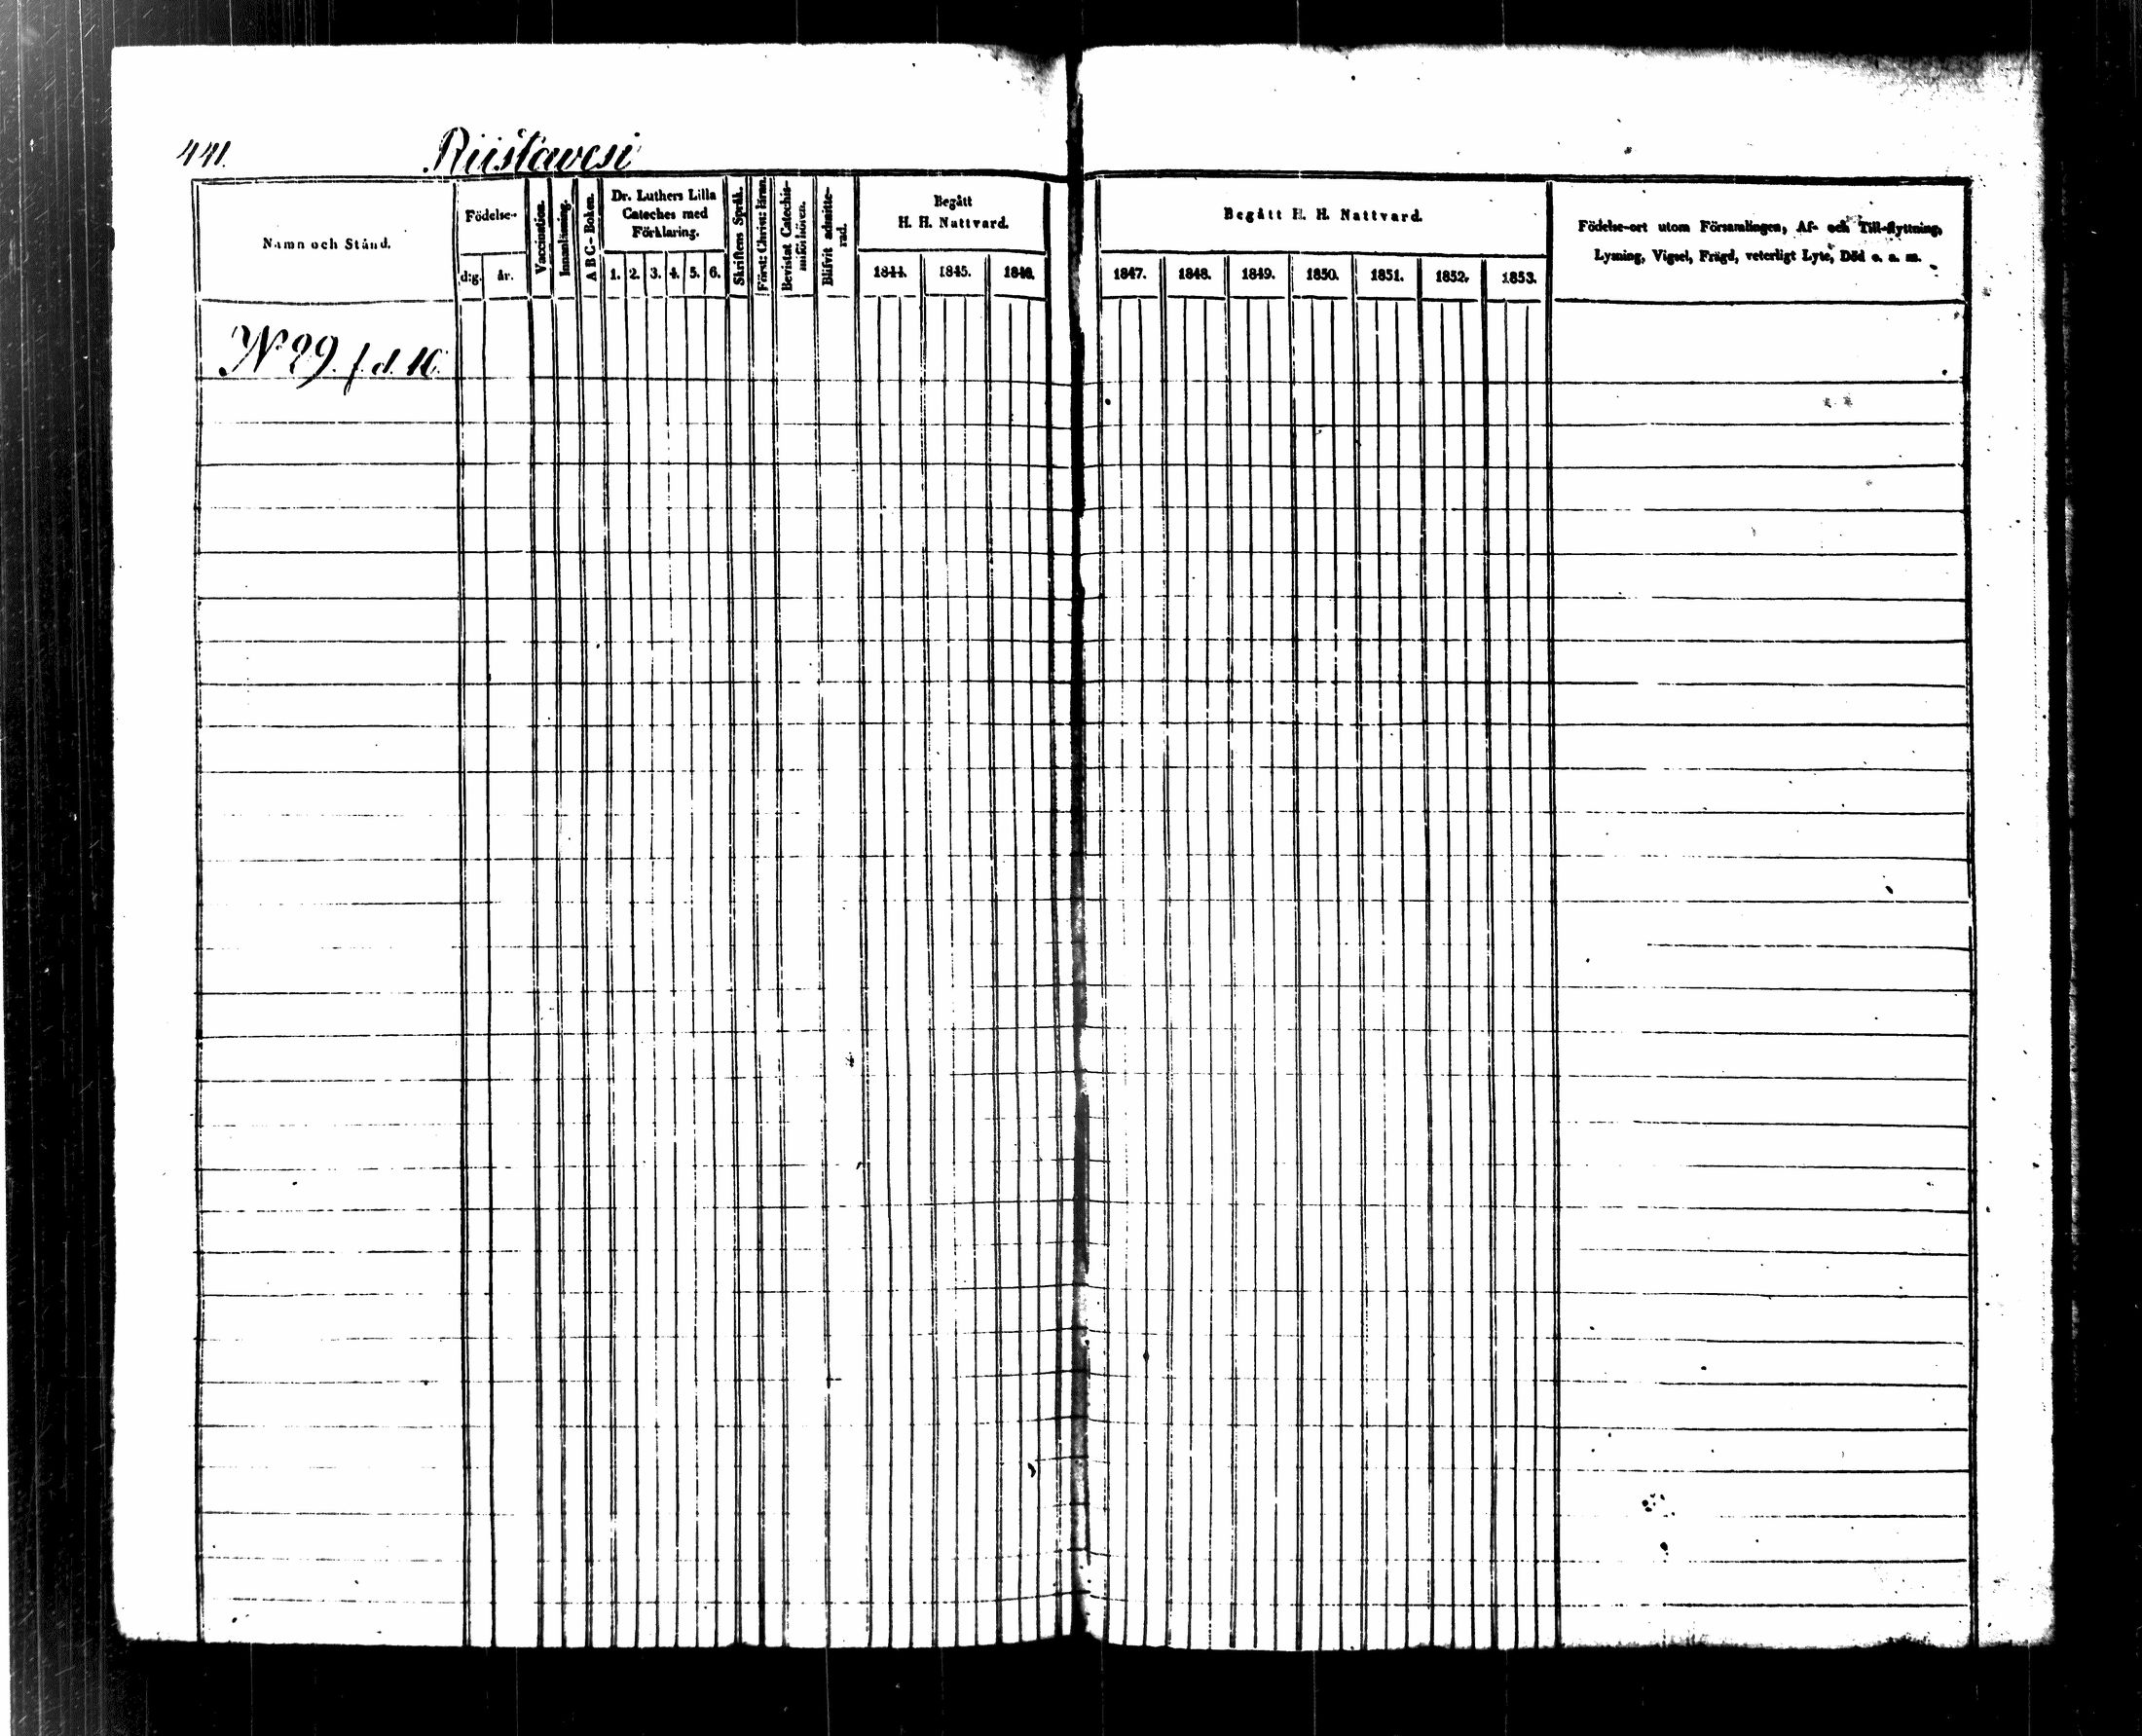 441.
Riistavesi
Namn och Stånd.
Födelse-
d:g.
år.
Vaccination.
Innanläsning.
A B C - Boken.
Dr. Luthers Lilla
Cateches med
Förklaring.
1. 2. 3. 4. 5. 6.
Skriftens Språk.
Först: Christ: läran.
Bevistat Catechis-
miförhören.
Blifvit admitte-
rad.
Begått
H. H. Nattvard.
1844. 1845. 1846.
Begått H. H. Nattvard.
1847. 1848. 1849. 1850. 1851. 1852. 1853.
Födelse-ort utom Församlingen, Af- och Till-flyttning,
Lysning, Vigsel, Frägd, veterligt Lyte, Död o. a. m.
N 29. f. d. 10.